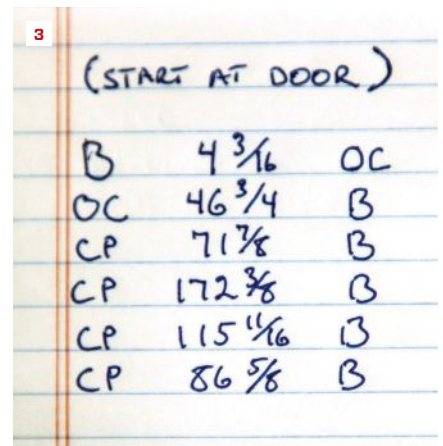 3
(START AT DOOR)
B 4 3/16 OC
OC 46 3/4 B
CP 71 7/8 B
CP 172 3/8 B
CP 115 11/16 B
CP 86 5/8 B